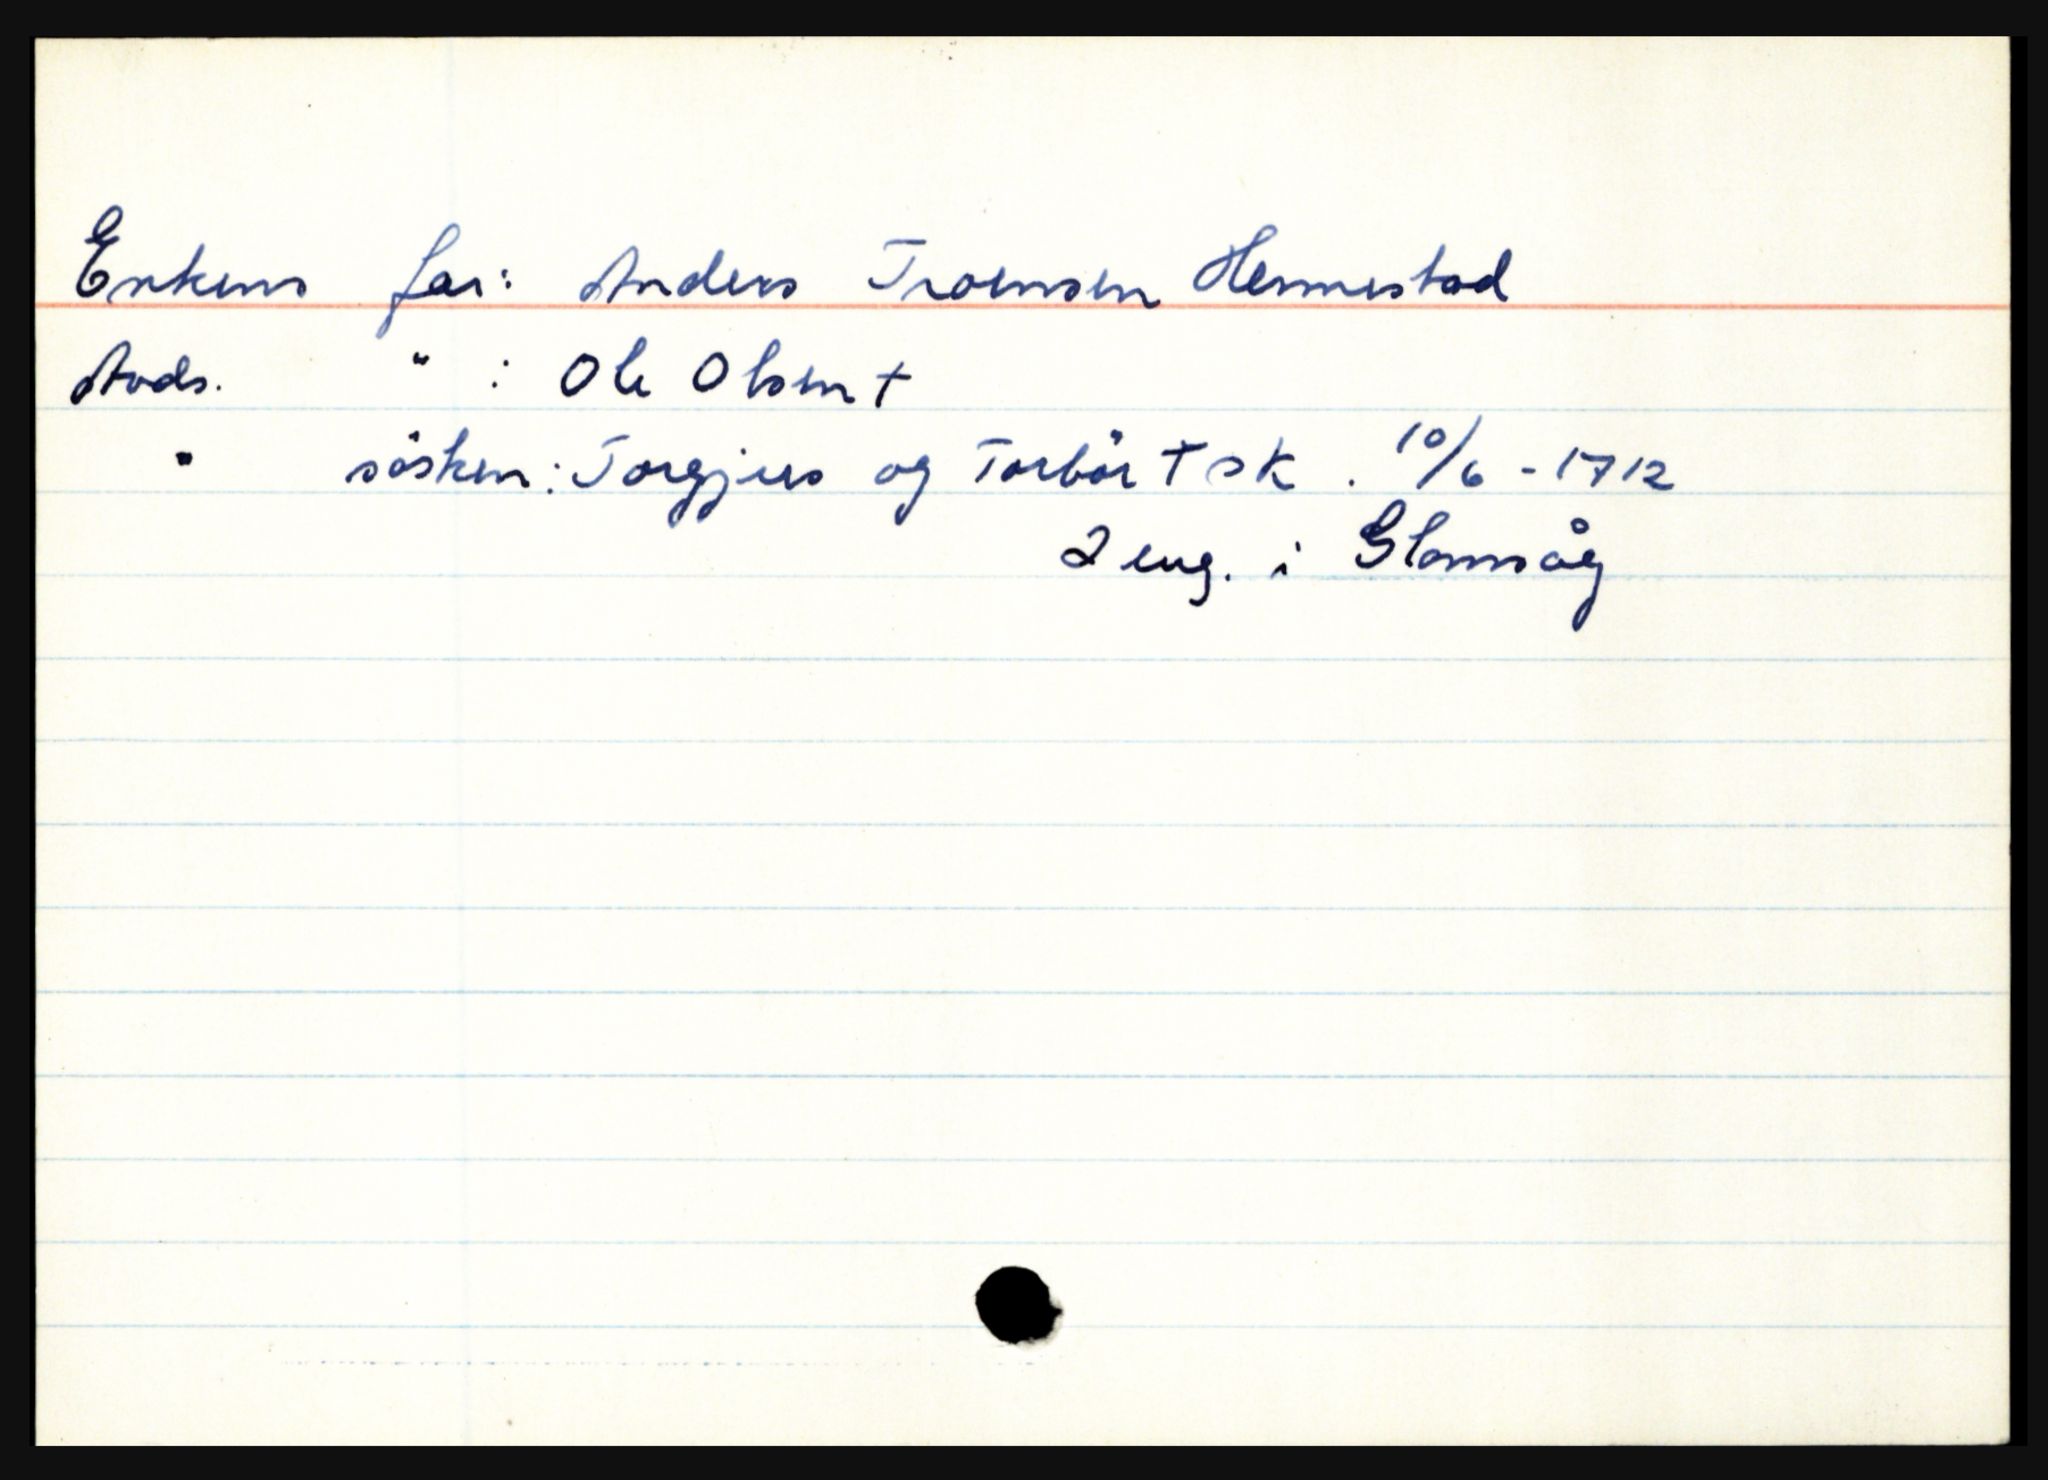 Enkens far: Anders Troensen Hennestad
Avds. " : Ole Olsen +
" søsken: Torgjus og Torbör + sk. 10/6 - 1712
2 eng. i Glamsåg